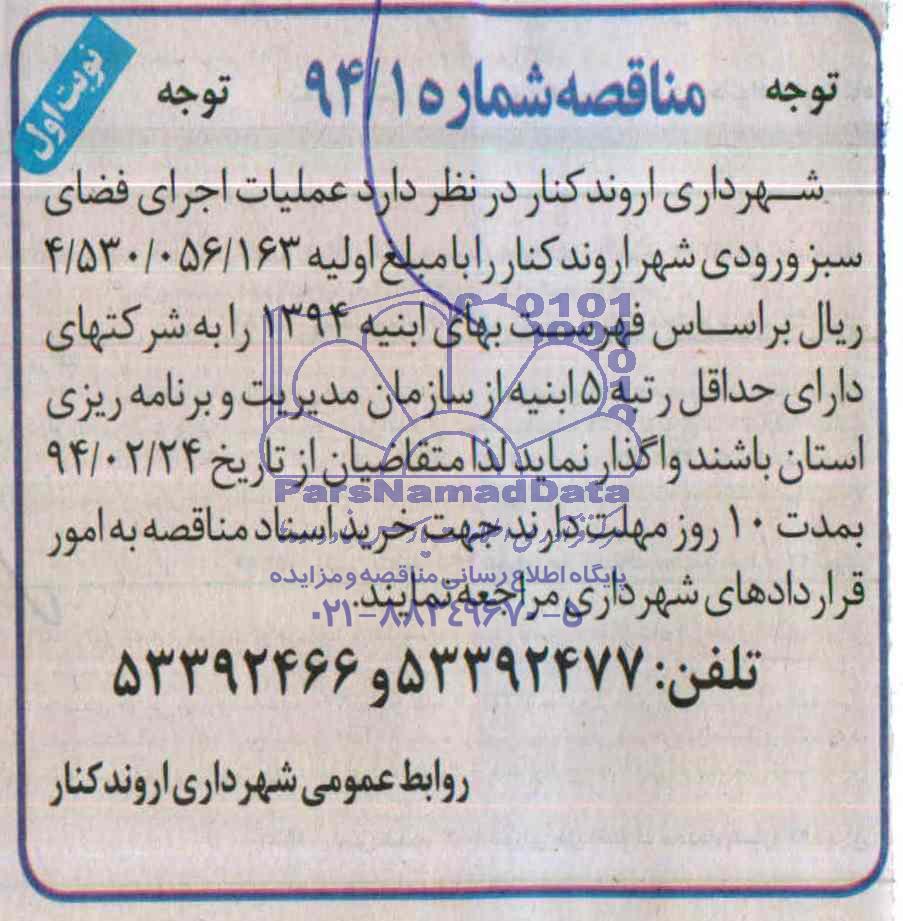 نوبت اول
توجه مناقصه شماره ۹۴/۱ توجه
شهرداری اروندکنار در نظر دارد عملیات اجرای فضای
سبز ورودی شهر اروندکنار را با مبلغ اولیه ۴/۵۳۰/۰۵۶/۱۶۳
ریال بر اساس فهرست بهای ابنیه ۱۳۹۴ را به شرکتهای
دارای حداقل رتبه ۵ ابنیه از سازمان مدیریت و برنامه ریزی
استان باشند واگذار نماید لذا متقاضیان از تاریخ ۹۴/۰۲/۲۴
بمدت ۱۰ روز مهلت دارند جهت خرید اسناد مناقصه به امور
قراردادهای شهرداری مراجعه نمایند.
تلفن: ۵۳۳۹۲۴۷۷ و ۵۳۳۹۲۴۶۶
روابط عمومی شهرداری اروندکنار
ParsNamadData
پایگاه اطلاع رسانی مناقصه و مزایده
۰۲۱-۸۸۳۴۹۶۷۰-۵